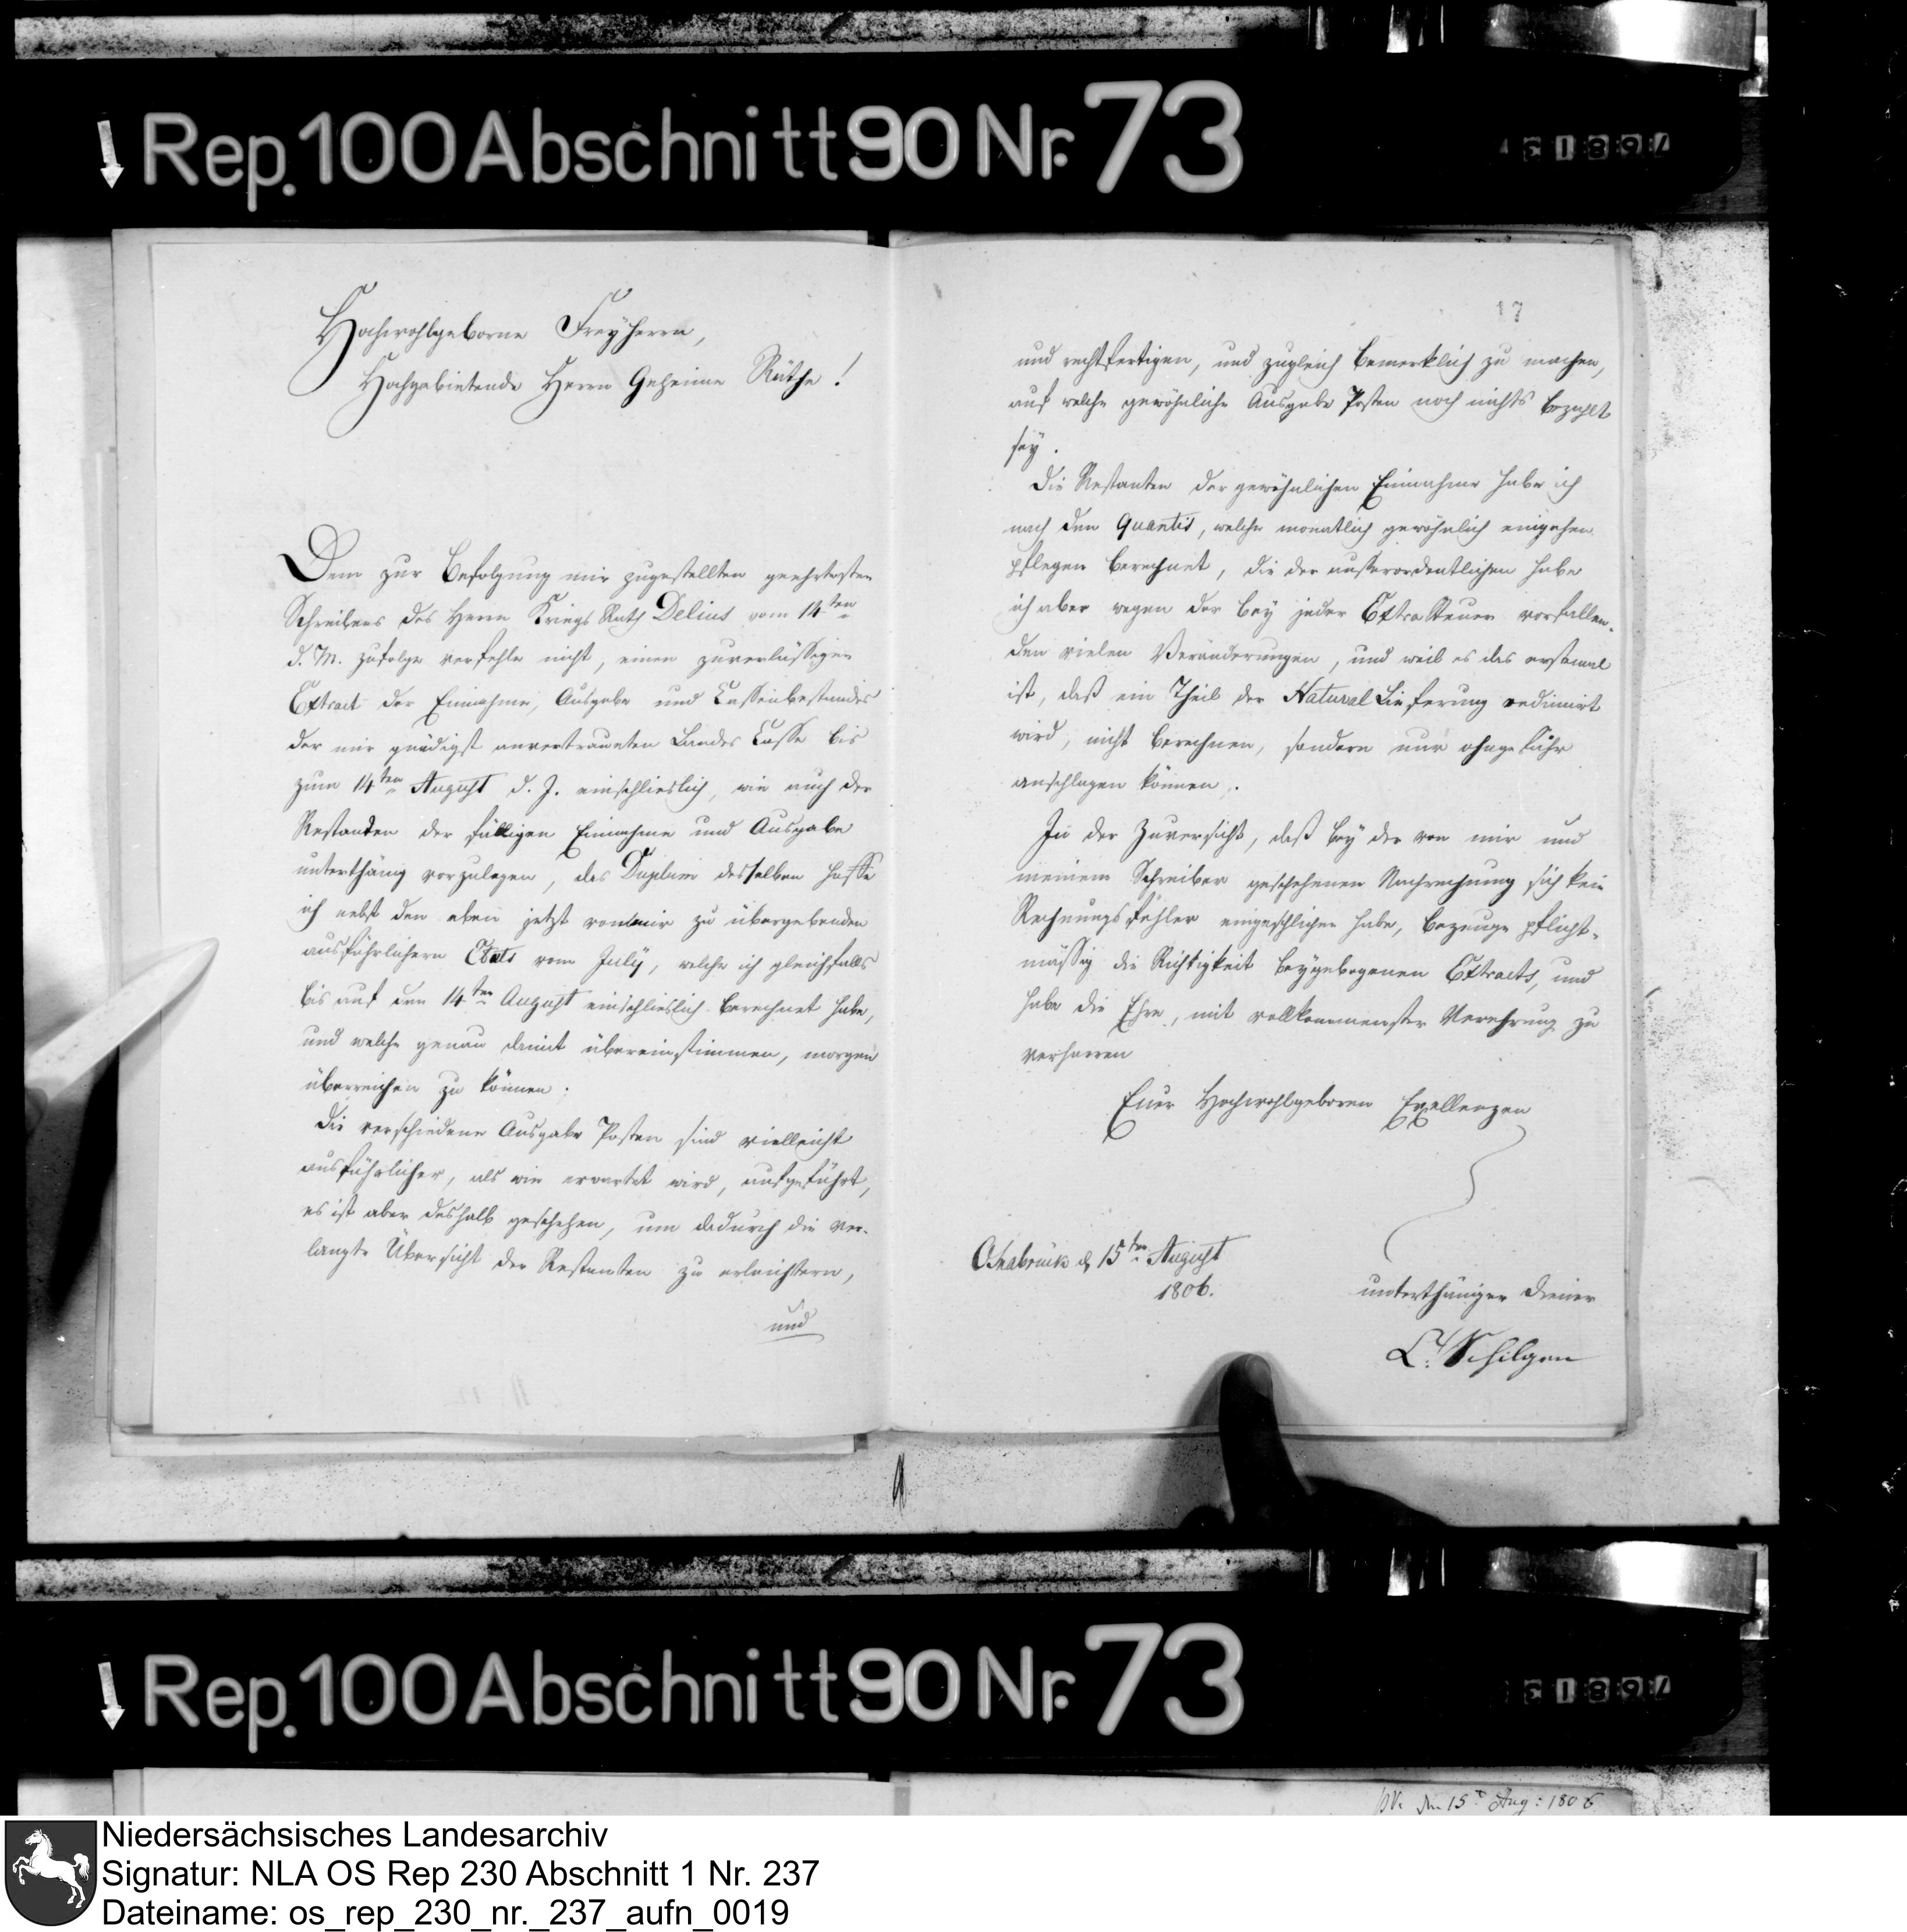 Rep. 100 Abschnitt 90 Nr. 73
Hochwohlgeborne Freyherrn,
Hochgebietende Herrn Geheime Räthe!
Dem zur Befolgung mir zugestellten geehrtesten
Schreibens des Herrn Kriegs Rath Delius vom 14ten
d. M. zufolge verfehle nicht, einen zuverlässigen
Extract der Einnahme, Ausgabe und Cassenbestandes
der mir gnädigst anvertraueten Landes Casse bis
zum 14ten August d. J. einschlieslich, wie auch der
Restanten der fälligen Einnahme und Ausgabe
unterthänig vorzulegen, das Duplum desselben hoffe
ich nebst den eben jetzt von mir zu übergebenden
ausführlichern Etats vom July, welche ich gleichfalls
bis auf den 14ten August einschlieslich berechnet habe,
und welche genau damit übereinstimmen, morgen
überreichen zu können.
Die verschiedene Ausgabe Posten sind vielleicht
ausführlicher, als wie erwartet wird, aufgeführt,
es ist aber deshalb geschehen, um dadurch die ver-
langte Übersicht der Restanten zu erleichtern,
und
17
und rechtfertigen, und zugleich bemerklich zu machen,
auf welche gewöhnliche Ausgabe Posten noch nichts bezahlt
sey.
Die Restanten der gewöhnlichen Einnahme habe ich
nach den Quantis, welche monatlich gewöhnlich eingehen
pflegen berechnet, die der ausserordentlichen habe
ich aber wegen der bey jeder Extra Steuer vorfallen-
den vielen Veränderungen, und weil es das erstemal
ist, daß ein Theil der Natural Lieferung redimirt
wird, nicht berechnen, sondern nur ohngefähr
anschlagen können.
In der Zuversicht, daß bey der von mir und
meinem Schreiber geschehenen Nachrechnung sich kein
Rechnungsfehler eingeschlichen habe, bezeuge pflicht-
mässig die Richtigkeit beygebogenen Extracts, und
habe die Ehre, mit vollkommenster Verehrung zu
verharren
Euer Hochwohlgeboren Exellenzen
Osnabrück d 15ten August
1806.
unterthäniger Diener
Schilgen
Rep. 100 Abschnitt 90 Nr. 73
15t Aug: 1806
Niedersächsisches Landesarchiv
Signatur: NLA OS Rep 230 Abschnitt 1 Nr. 237
Dateiname: os_rep_230_nr._237_aufn_0019